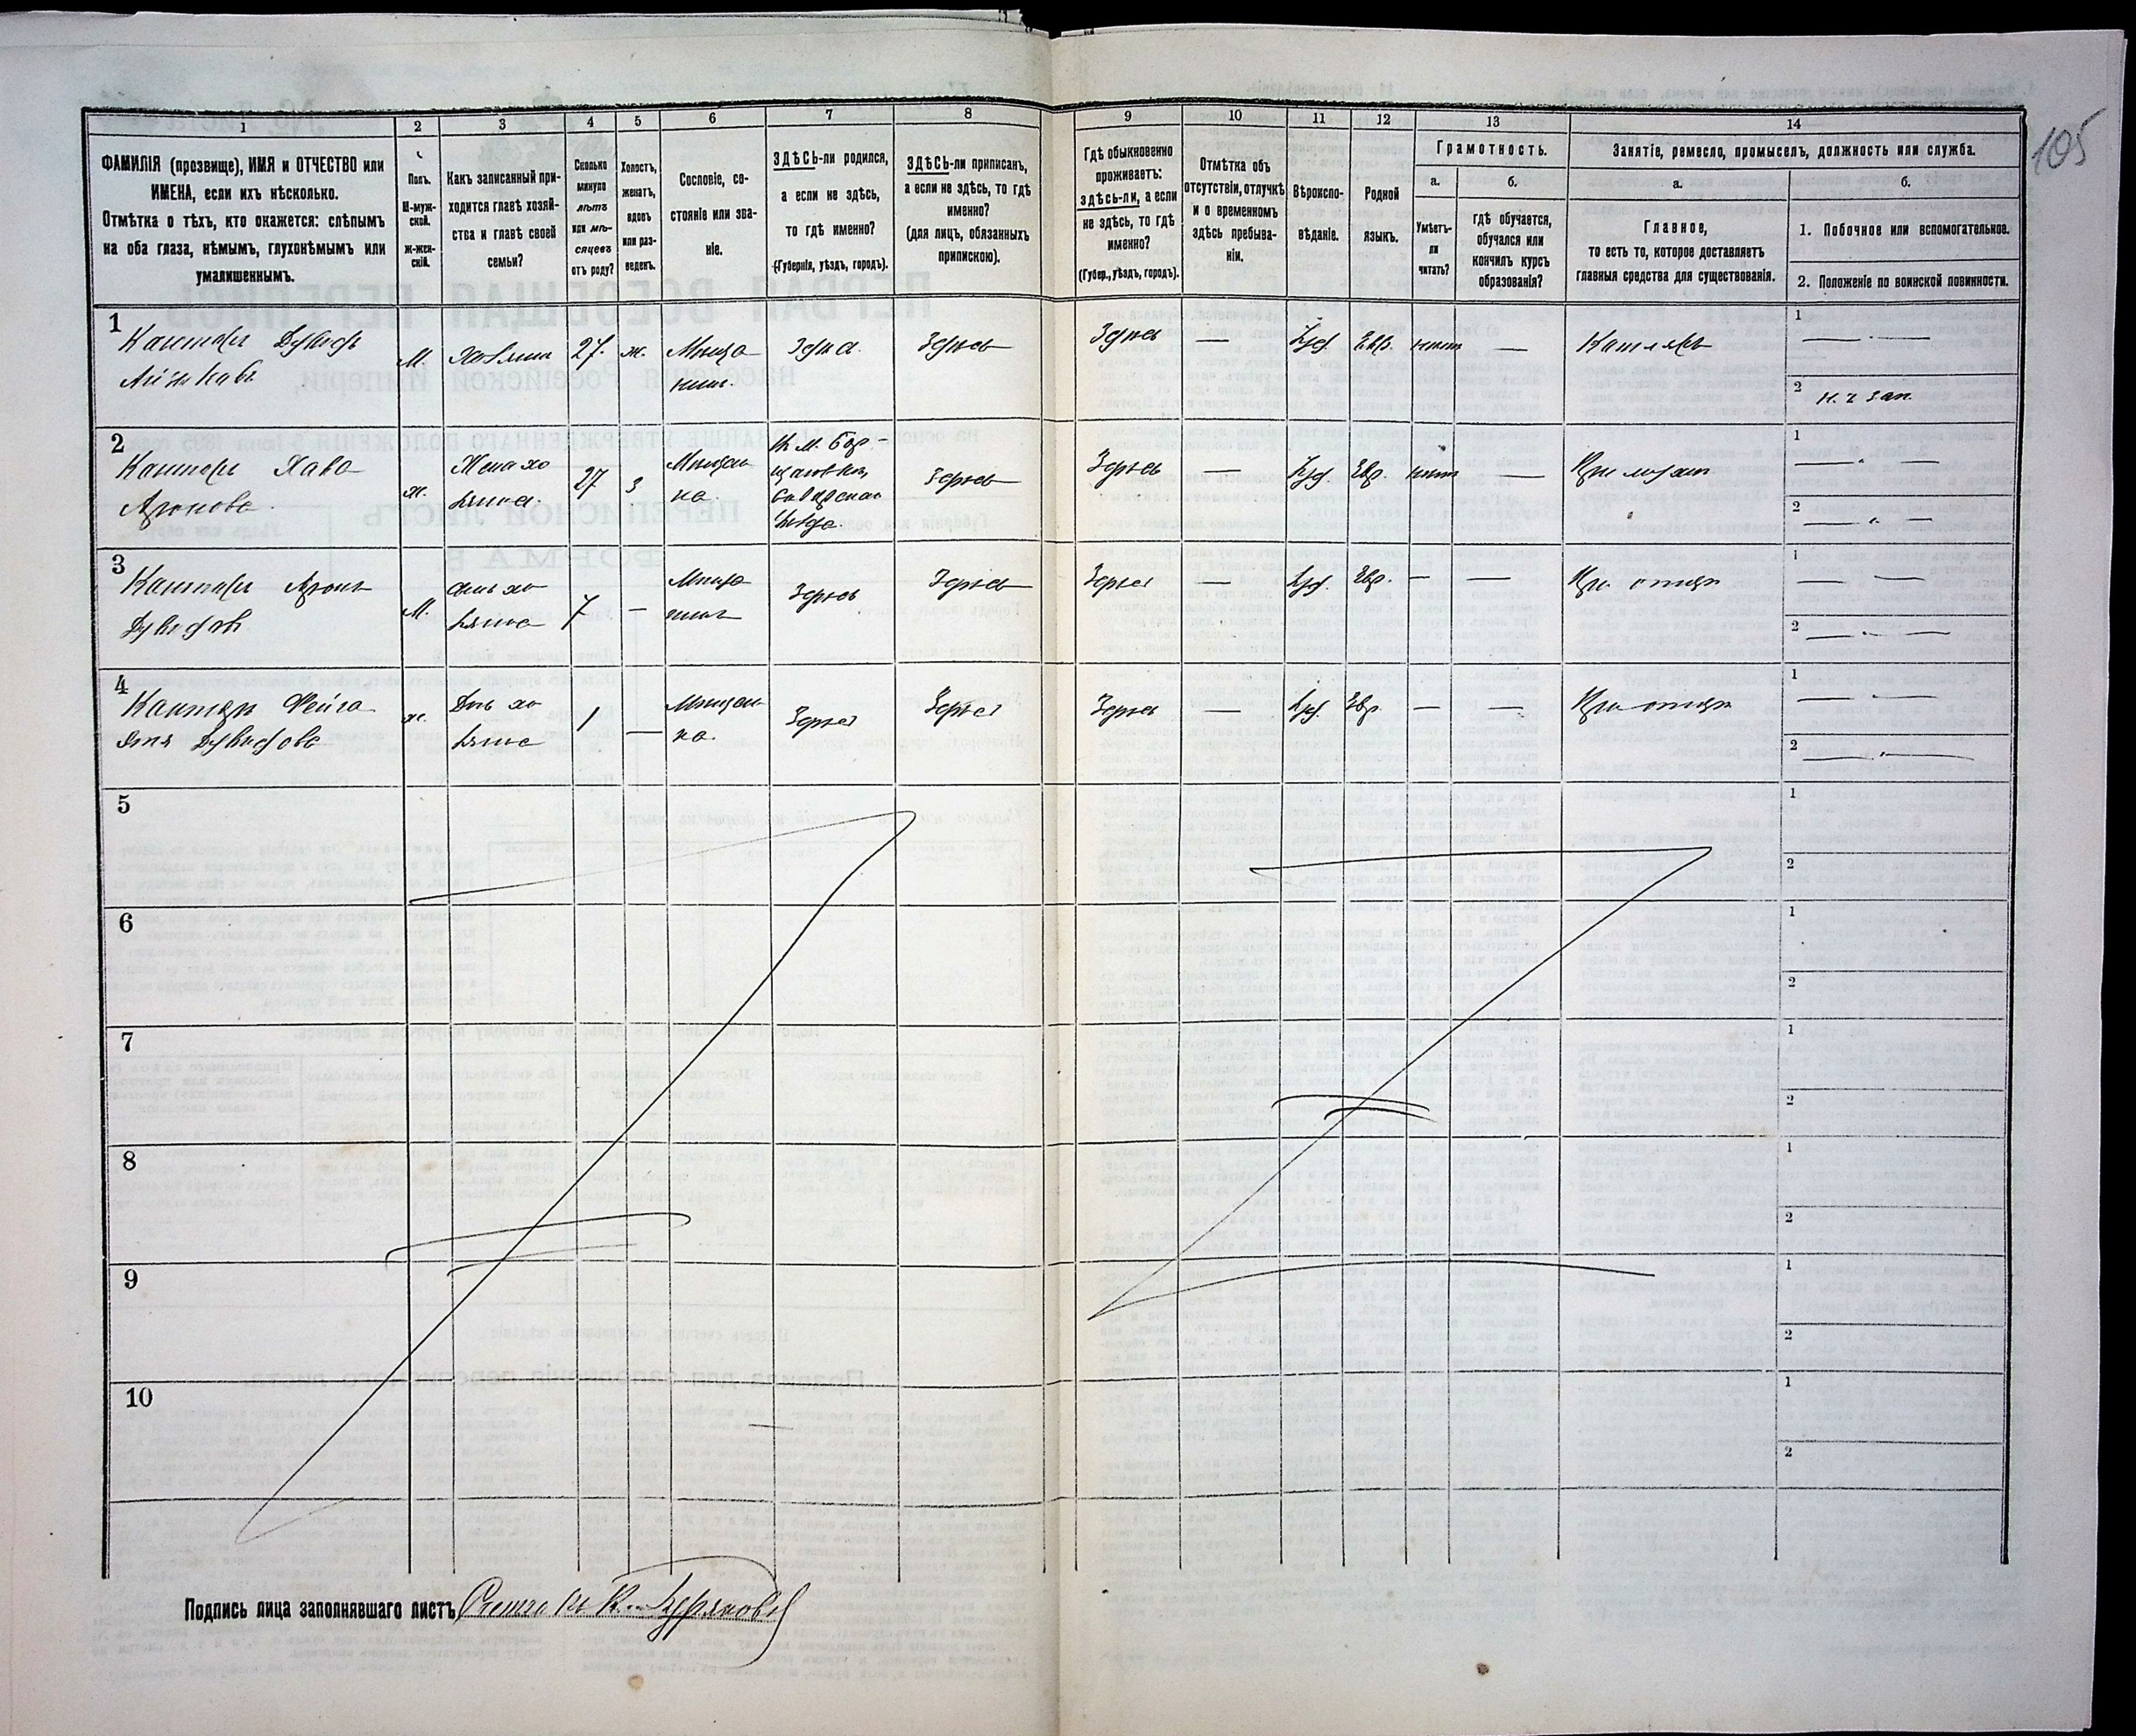 105
1 2 3 4 5 6 7 8 9 10 11 12 13 14
ФАМИЛІЯ (прозвище), ИМЯ и ОТЧЕСТВО или
ИМЕНА, если ихъ нѣсколько.
Отмѣтка о тѣхъ, кто окажется: слѣпымъ
на оба глаза, нѣмымъ, глухонѣмымъ или
умалишеннымъ.
Полъ.
М-муж-
ской.
Ж-жен-
скій.
Какъ записанный при-
ходится главѣ хозяй-
ства и главѣ своей
семьи?
Сколько
минуло
лѣтъ
или мѣ-
сяцевъ
отъ роду?
Холостъ,
женатъ,
вдовъ
или раз-
веденъ.
Сословіе, со-
стояніе или зва-
ніе.
ЗДѢСЬ-ли родился,
а если не здѣсь,
то гдѣ именно?
(Губернія, уѣздъ, городъ).
ЗДѢСЬ-ли приписанъ,
а если не здѣсь, то гдѣ
именно?
(для лицъ, обязанныхъ
припискою).
Гдѣ обыкновенно
проживаетъ:
здѣсь-ли, а если
не здѣсь, то гдѣ
именно?
(Губер., уѣздъ, городъ).
Отмѣтка объ
отсутствіи, отлучкѣ
и о временномъ
здѣсь пребыва-
ніи.
Вѣроиспо-
вѣданіе.
Родной
языкъ.
Грамотность.
а.
Умѣетъ-
ли
читать?
б.
гдѣ обучается,
обучался или
кончилъ курсъ
образованія?
Занятіе, ремесло, промыселъ, должность или служба.
а.
Главное,
то есть то, которое доставляетъ
главныя средства для существованія.
б.
1. Побочное или вспомогательное.
2. Положеніе по воинской повинности.
1
Канторъ Дувидъ
М. Хозяинъ 27. ж. Мѣща-
нинъ. Здѣсь. Здѣсь Здѣсь — Іуд. Евр. нѣтъ —
1 —
2
2
Канторъ Хава
Аронова
ж. Жена хо-
зяина. 27 з Мѣщан-
ка. Здѣсь Здѣсь — Іуд. Евр. нѣтъ —
1 —
2 —
3
Канторъ Аронъ
Дувидовъ
М. сынъ хо-
зяина 7 — Мѣща-
нинъ Здѣсь Здѣсь Здѣсь — Іуд. Евр. — — При отцѣ
1 —
2 —
4
Канторъ Фейга
Дувидова
ж. Дочь хо-
зяина 1 — Мѣщан-
ка. Здѣсь Здѣсь Здѣсь — Іуд. Евр. — — При отцѣ
1 —
2 —
5 1
2
6 1
2
7 1
2
8 1
2
9 1
2
10 1
2
Подпись лица заполнявшаго листъ